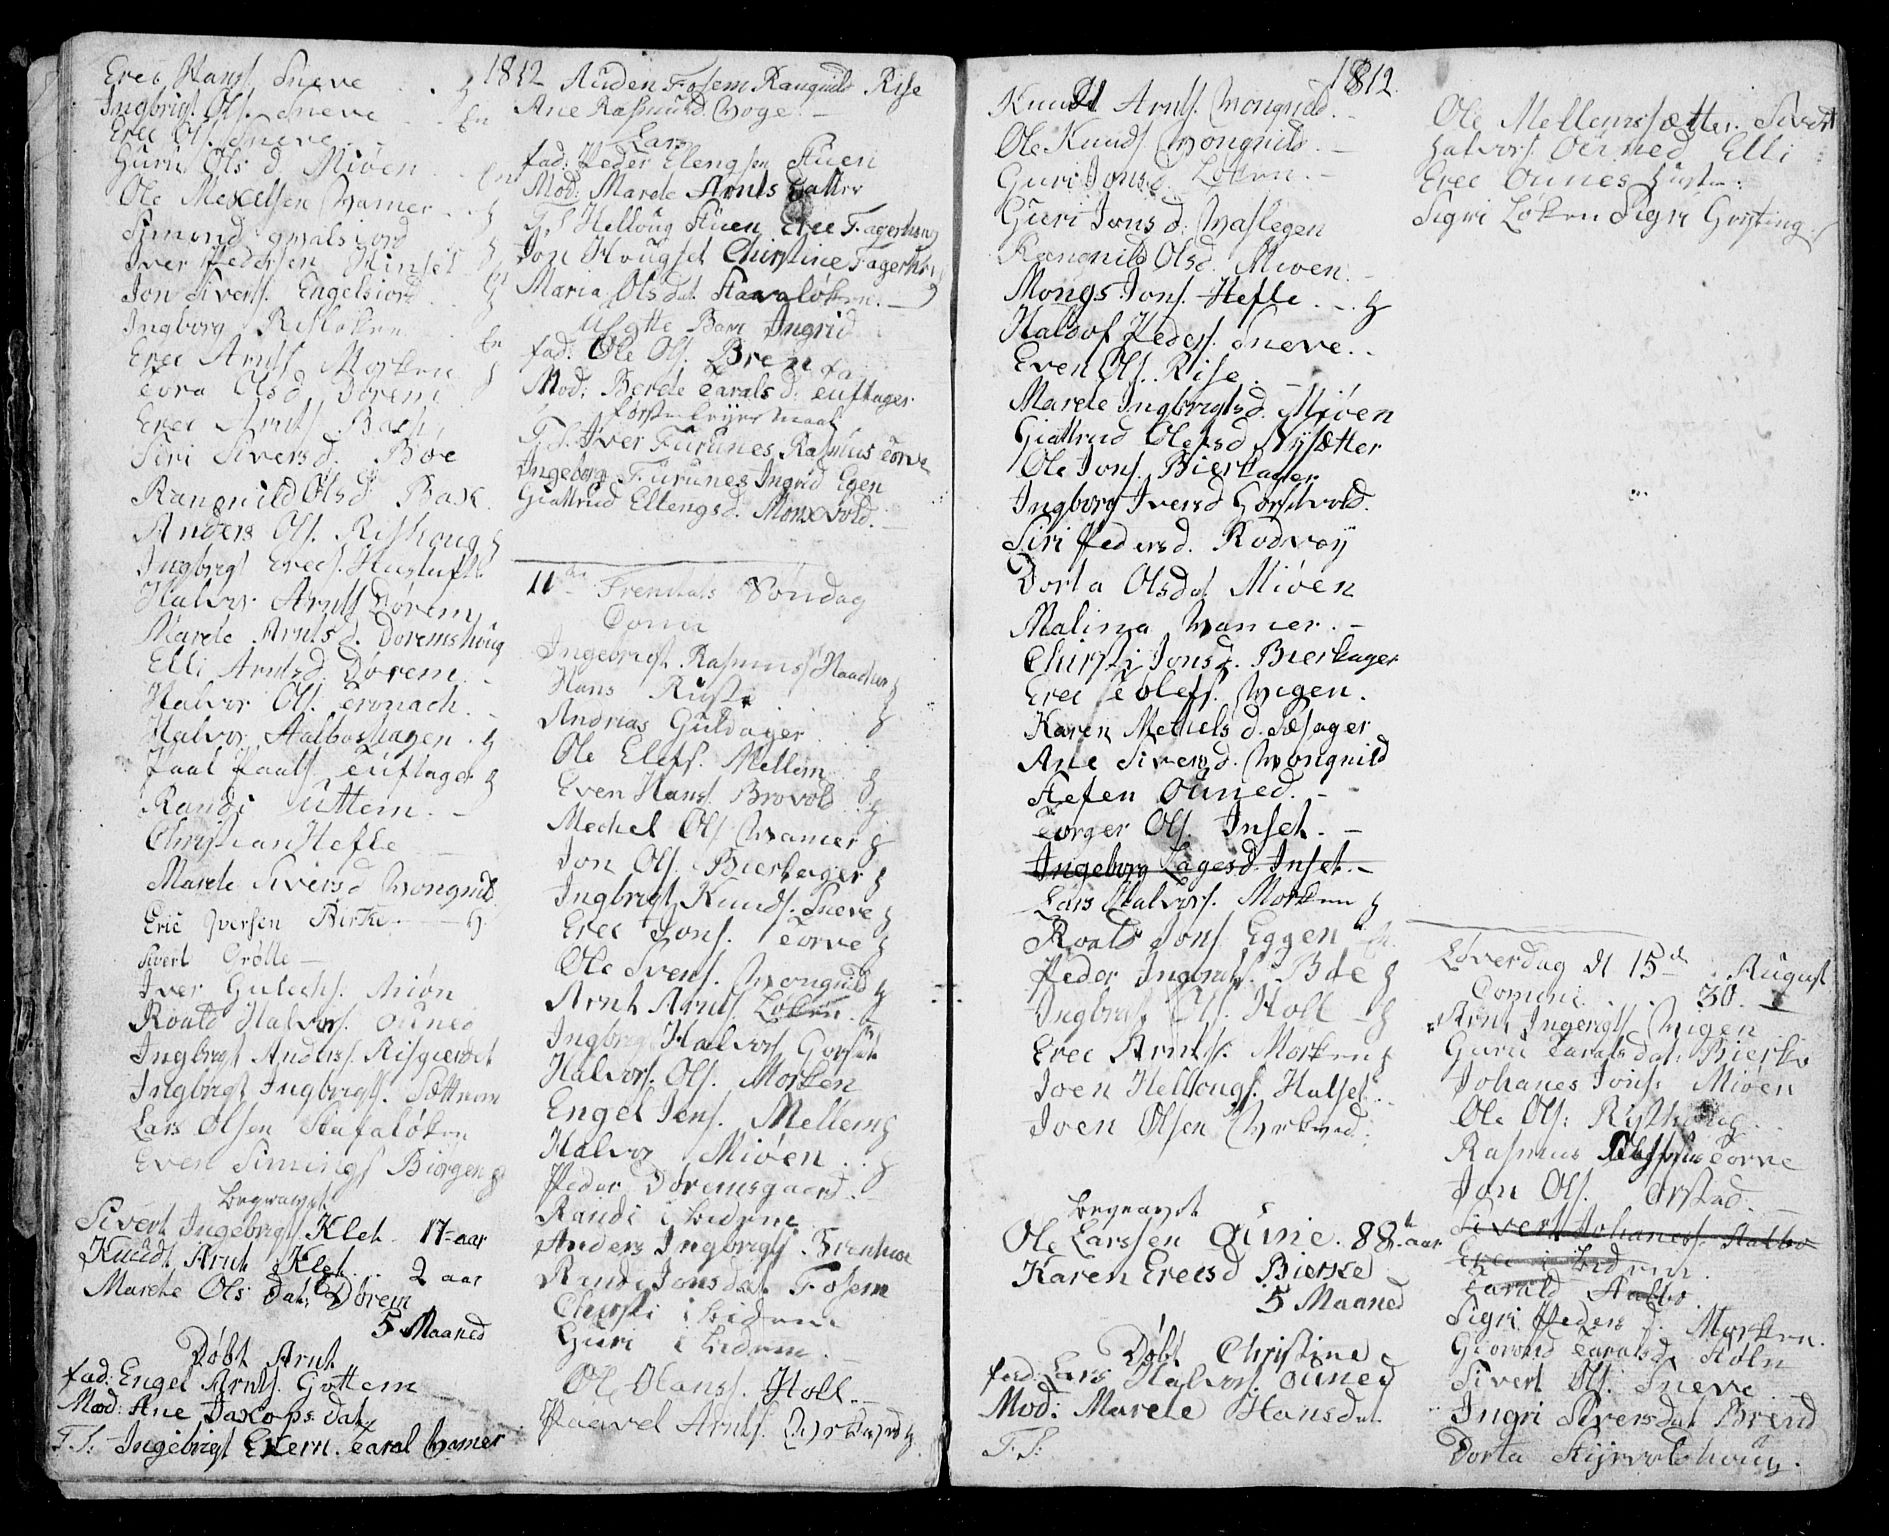 1812
Erec Hans. Sneve
Ingbrigt Ols. Sneve
Erec Ols. Sneve
Guru Ols d Miøen
Ole Mekelsen Wamer
Simond
Iver Pedersen Hinset
Jon Sivers. Engelsiord
Ingborg Risløken
Erec Arnts. Morken
Tora Ols d Dorem
Erec Arnts. Bach
Siri Sivers d. Boe
Ranqnild Ols d Bak
Anders Ols. Rishoug
Ingbrigt Erecs. Husluft
Halvor Arnts Dørem
Marete Arnts d. Doremshoug
Elli Arntsd. Dørem
Halvor Ols. Tronach
Halvor Aalboshagen
Paal Paals Tuftager
Randi Uttem
Christian Hefle
Marete Sivers d Wongnild
Eric Iversen Birke
Sivert Trøtte
Iver Gulechs. Miøn
Roald Halvors. Ouned
Ingbrigt Anders. Risgierdet
Ingbrigt Ingbrigts. Sættrem
Lars Olsen Stafaløken
Even Simings Biørgen
begravet
Sivert Ingebrigts Klet 17 aar
Knudt Arnt Klet 2 aar
Marete Ols dat: Dorem
5 Maaned
Døbt Arnt
fad: Engel Arnts. Gottem
Mod: Ane Jakops dat
F.S: Ingebrigt Ekern. Taral Wamer
Auden Fosem Ranquild Rise
Ane Rasmusd Woge
Lars
fad: Peder Elengsen Stuen
Mod: Marete Arnts datter
F.S Helloug Stuen Erec Fagerhoug
Jon Hougset Christine Fagerhoug
Maria Olsdat Stavaløken
Uegte Barn Ingrid
fad: Ole Ols. Brenna
Mod: Berete Tarals d: Tuftager
første Leyermaal
F.S. Iver Furunes Rasmus Torve
Ingeborg Furunes Ingrid Egen
Giattrud Ellengsd. Monxvold
11te Trenitats Søndag
Comu
Ingebrigt Rasmus
Hans Ruste
Andreas Guldager
Ole Elefs. Mellem
Even Hans. Brovold
Mechel Ols Wamer
Jon Ols. Bierkager
Ingbrigt Knuds. Sneve
Erec Jons. Torve
Ole Svens. Wongnild
Arnt Arnts. Løken
Ingbrigt Halvors Gorset
Halvor. Ols. Morken
Engel Jens. Mellem
Halvor Miøen
Peder Doremsgaard
Randi ibidem
Anders Ingbrigts.
Randi Jonsdat Fosem
Christi ibidem
Guri ibidem
Ole Hans. Holl
Paavel Arnts.
1812
Knudt Arnts. Wongnild
Ole Knuds Wongnild
Guri Jonsd. Løken
Guri Jons d. Waslegen
Rangnild Olsd. Miøen
Mongs Jons. Hefle
Haldof Peders. Sneve
Even Ols. Rise
Marete Ingbrigtsd. Miøen
Giattrud Olefsd Nysætter
Ole Jons. Bierkager
Ingborg Iversd Gorsetvold
Siri Pedersd. Rodvey
Dorta Olsdat Miøen
Malina Wamer
Christi Jonsd. Bierkager
Erec Tolefs. Wigen
Karen Mechels d. Sæsager
Ane Sivers d. Wongnild
Stefen Ouned
Torger Ols. Inset
Ingeborg Tagesd. Inset
Lars Halvors. Morken
Roald Jons Eggen
Peder Ingbrets. Boe
Ingbret Ols. Holl
Erec Arnts. Morken
Joen Hellougs. Halset
Joen Olsen
begravet
Ole Larssen Ounie. 88 aar
Karen Erecsd Bierke
5 Maaned
Døbt Christine
fad: Lars Halvors Ouned
Mod: Marete Hansdat
F.S:
Ole Mellemssætter Sivert
Halvors. Ouned Elli
Erec Ounes
Sigri Løken Sigri Gorsting
Løverdag d 15de August
Comuni 30
Arnt Ingebrigts Wigen
Guru Taralsdat: Bierke
Johanes Jons: Miøen
Ole Ols: Rysthoug
Rasmus Torve
Jon Ols. Orstad
Sivert Johanes. Aalbo
Erec ibidem
Tarald Aalbo
Sigri Peders d. Morken
Giørond Taralsd Støln
Sivert Ols. Sneve
Ingri Siversdat Brend
Dorta Styrvoldhoug